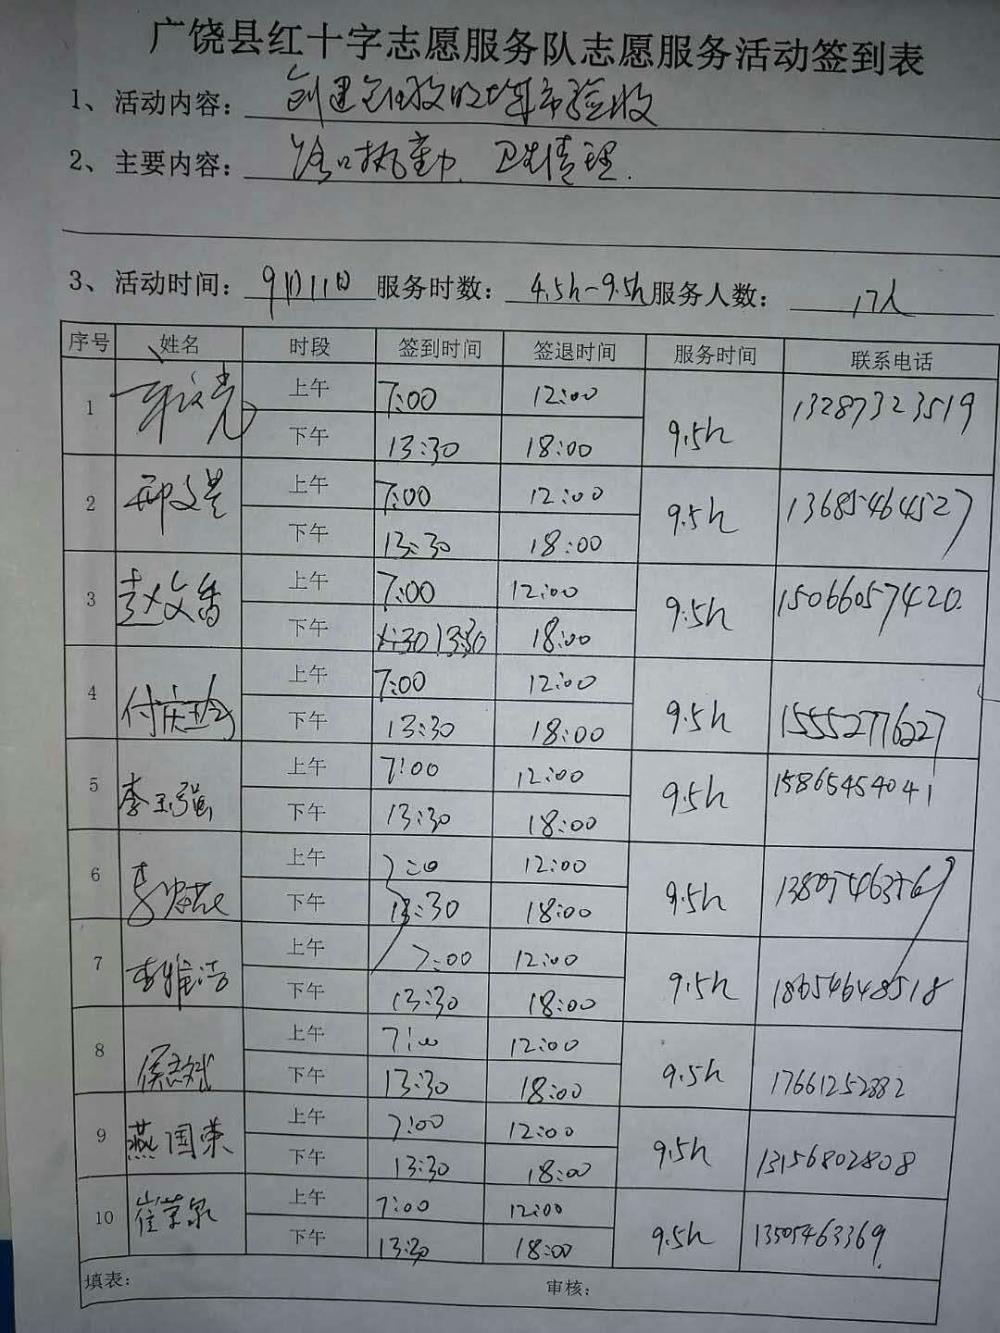 广饶县红十字志愿服务队志愿服务活动签到表
1、活动内容：创建 城市验收
2、主要内容：路口执勤、卫生清理.
3、活动时间：9月11日 服务时数：4.5h-9.5h 服务人数：17人
序号 姓名 时段 签到时间 签退时间 服务时间 联系电话
1 上午 7:00 12:00 9.5h 13287323519
下午 13:30 18:00
2 上午 7:00 12:00 9.5h 13685464527
下午 13:30 18:00
3 赵文香 上午 7:00 12:00 9.5h 15066057420
下午 13:30 18:00
4 付庆玲 上午 7:00 12:00 9.5h 15552776227
下午 13:30 18:00
5 李玉强 上午 7:00 12:00 9.5h 15865454041
下午 13:30 18:00
6 上午 7:00 12:00 9.5h
下午 13:30 18:00
7 李雅洁 上午 7:00 12:00 9.5h 18654648518
下午 13:30 18:00
8 上午 7:00 12:00 9.5h 17661252882
下午 13:30 18:00
9 燕国荣 上午 7:00 12:00 9.5h 13156802808
下午 13:30 18:00
10 崔荣泉 上午 7:00 12:00 9.5h 13505463369
下午 13:30 18:00
填表： 审核：